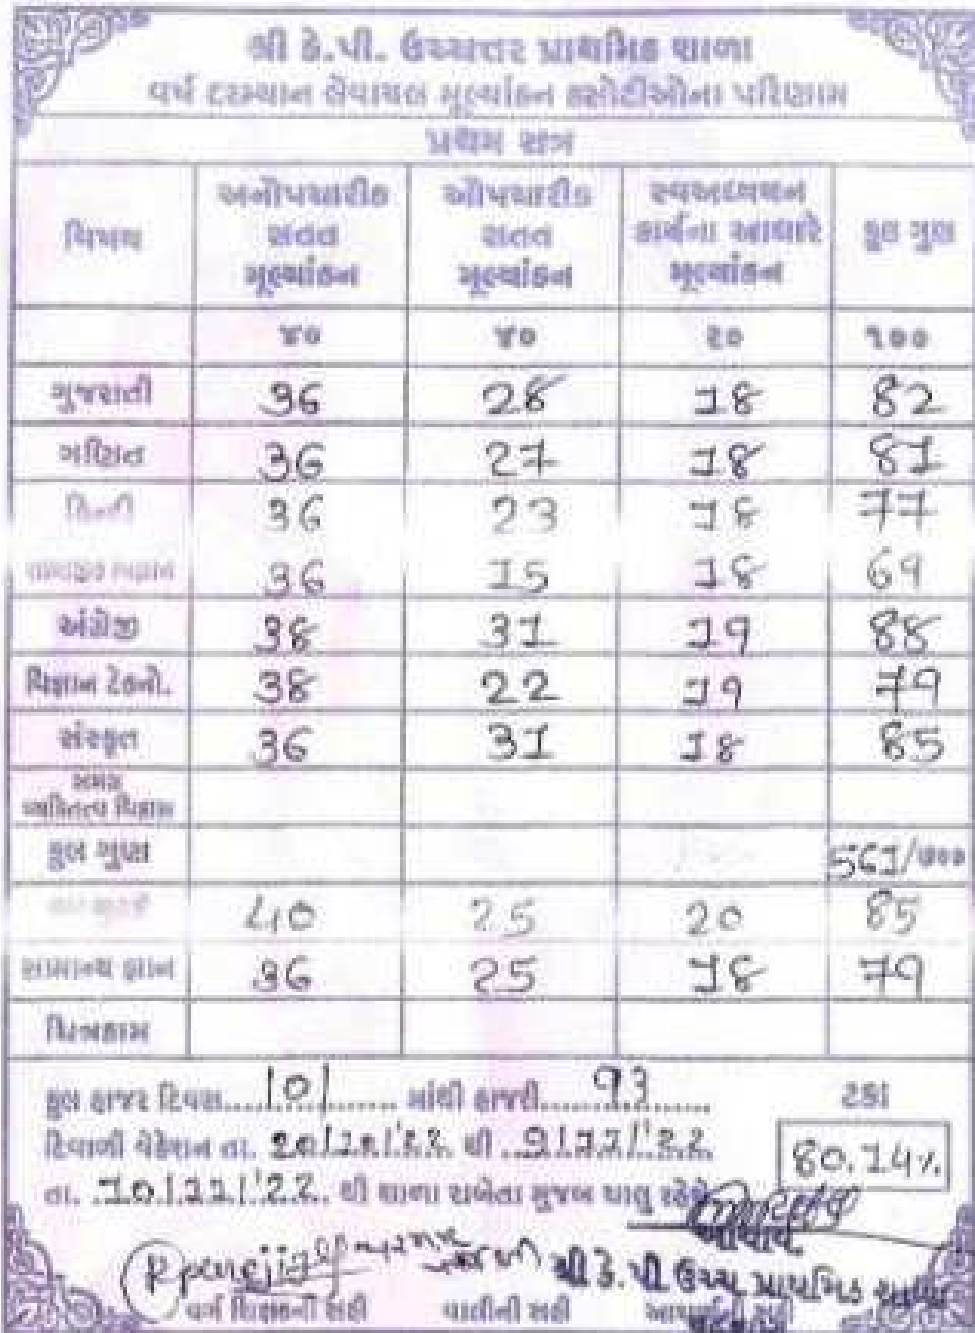 શ્રી કે.પી. ઉચ્ચત્તર પ્રાથમિક શાળા
વર્ષ દરમ્યાન લેવાયલ મૂલ્યાંકન કસોટીઓના પરિણામ
પ્રથમ સત્ર
વિષય અનૌપચારીક સતત મૂલ્યાંકન ઔપચારીક સતત મૂલ્યાંકન સ્વઅધ્યયન કાર્યના આધારે મૂલ્યાંકન કુલ ગુણ
૪૦ ૪૦ ૨૦ ૧૦૦
ગુજરાતી 36 28 18 82
ગણિત 36 27 18 81
હિન્દી 36 23 18 77
સામાજીક વિજ્ઞાન 36 15 18 69
અંગ્રેજી 38 31 19 88
વિજ્ઞાન ટેકનો. 38 22 19 79
સંસ્કૃત 36 31 18 85
સમગ્ર વ્યક્તિત્વ વિકાસ
કુલ ગુણ 561/૭૦૦
40 25 20 85
સામાન્ય જ્ઞાન 36 25 18 79
ચિત્રકામ
કુલ હાજર દિવસ 101 માંથી હાજરી 93 ટકા
દિવાળી વેકેશન તા. થી 80.14%
તા. થી શાળા રાબેતા મુજબ ચાલુ રહેશે
આચાર્ય
શ્રી કે.પી ઉચ્ચ પ્રાથમિક શાળા
વર્ગ શિક્ષકની સહી વાલીની સહી